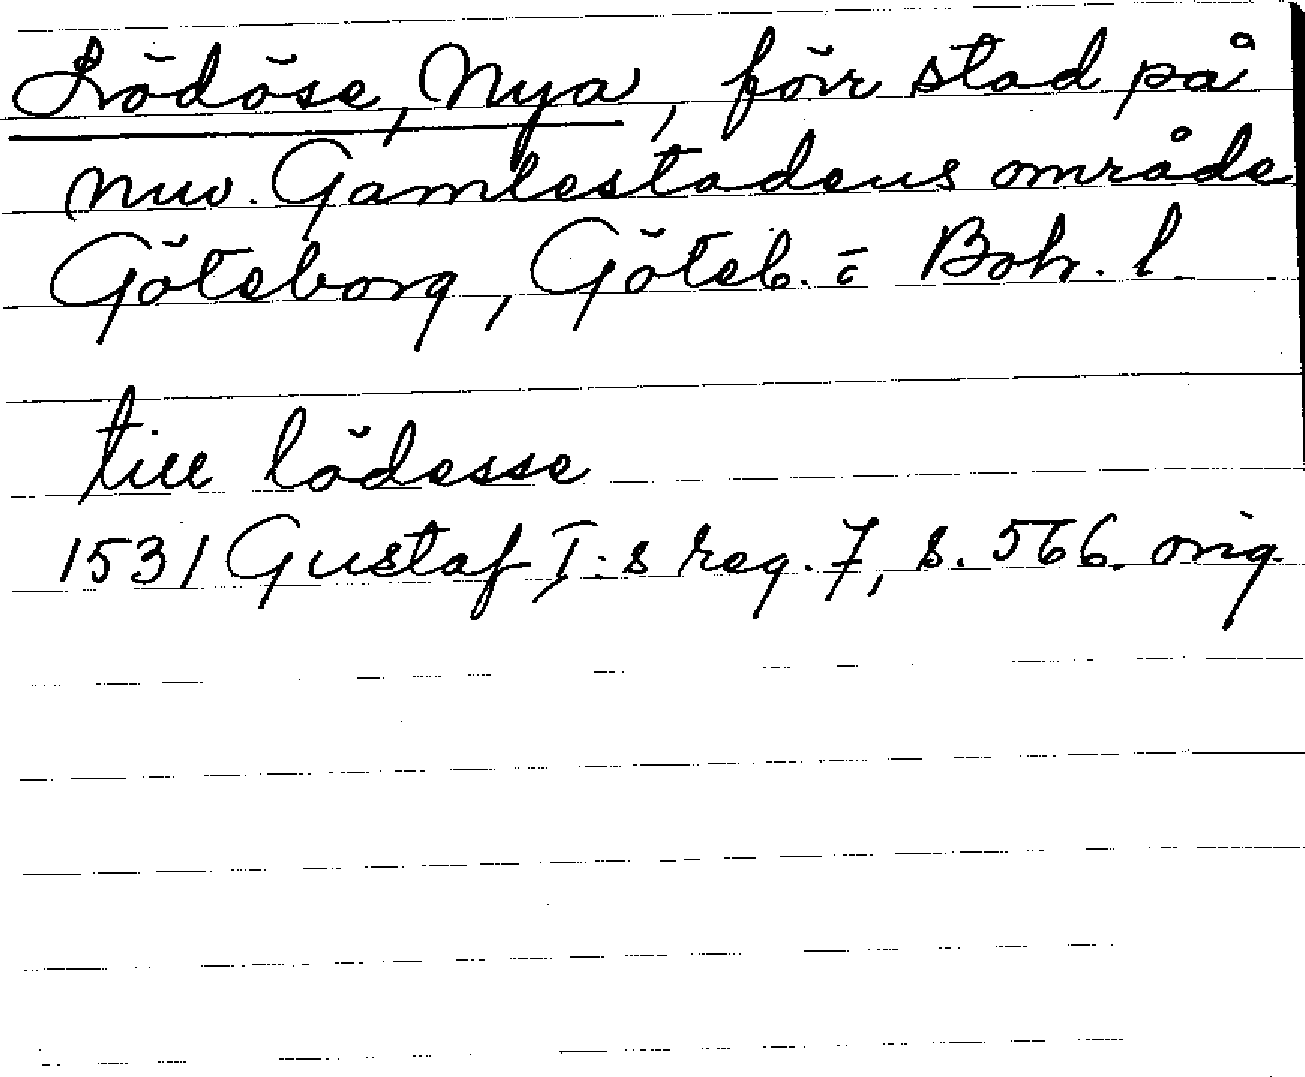 Lödöse, Nya, förr stad på
nuv. Gamlestadens område
Göteborg, Göteb. o Boh. l.
till lödesse
1531 Gustaf I:s reg. 7, s. 566. orig.